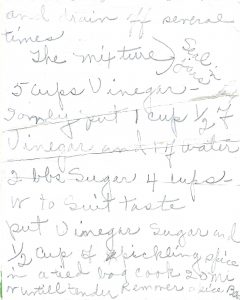 and drain off several
times
The mixture
5 cups Vinegar -
I only put 1 cup 1/2 of
Vinegar and 1 of water
2 lbs Sugar 4 cups
or to suit taste
put Vinegar Sugar and
1/2 cup of pickling spice
in a red bag cook 20 mi
or untill tender Remove spice Bag